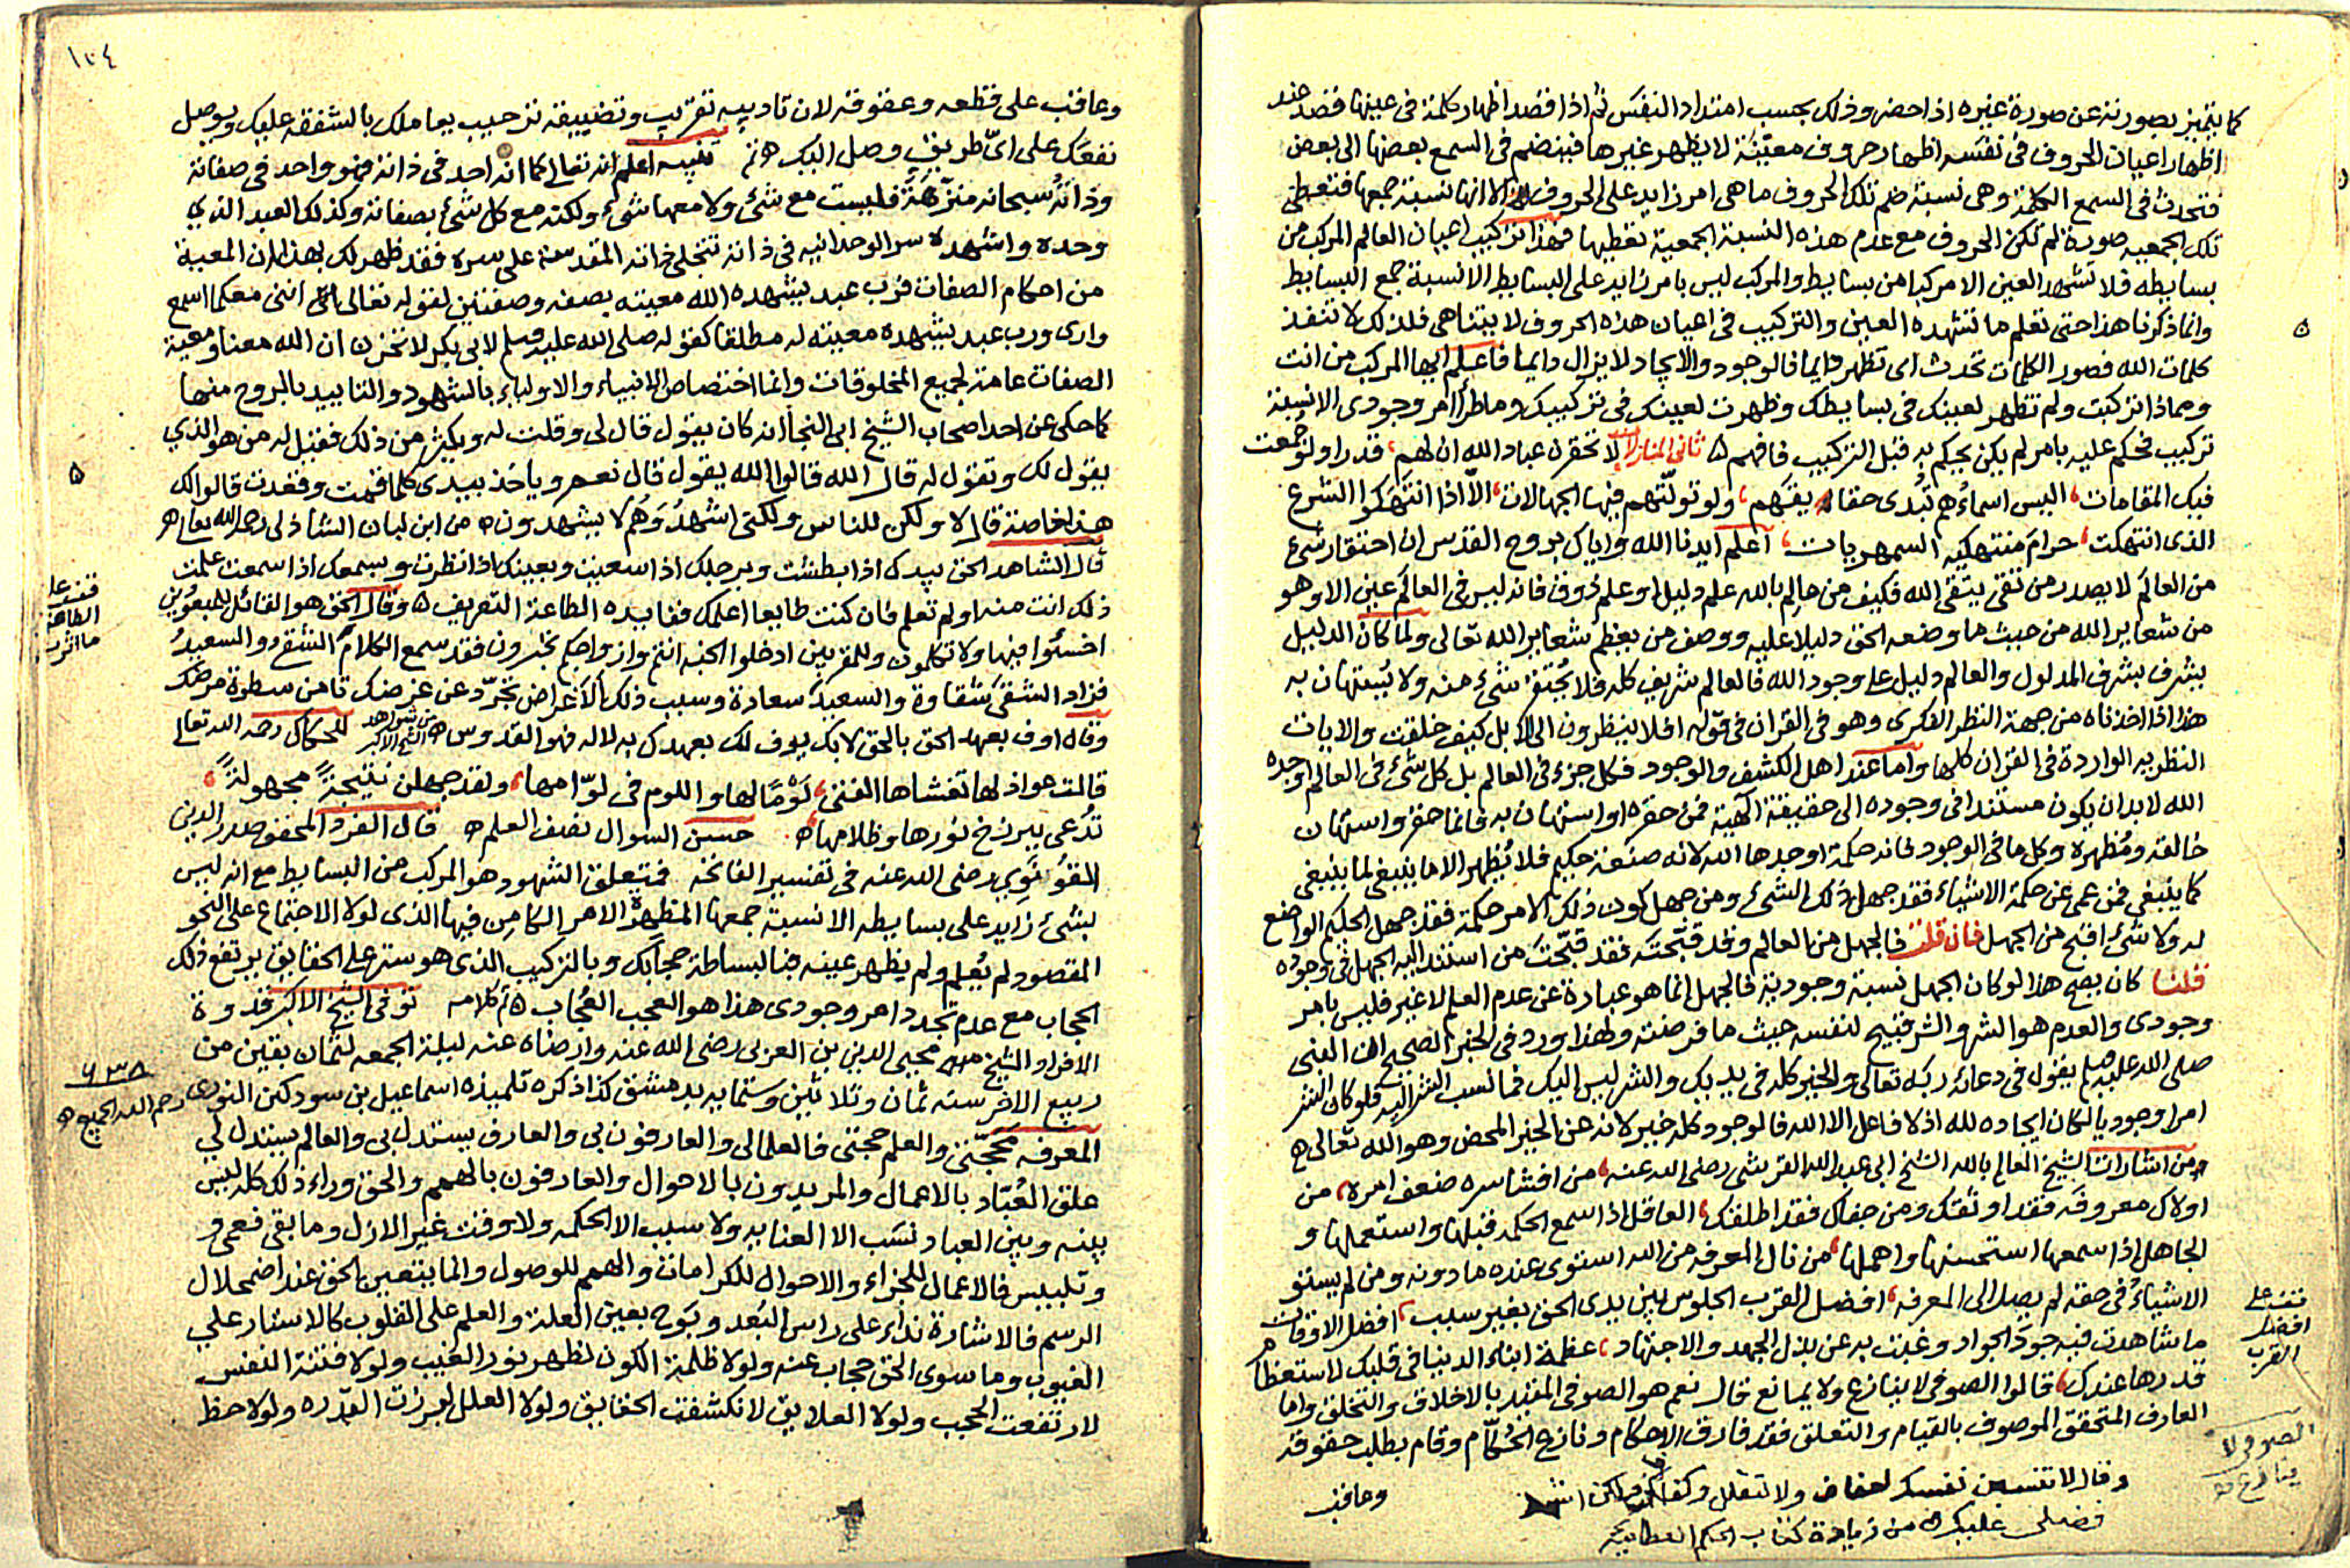 كما يتميز بصورته عن صورة غيره اذا حضر وذلك بحسب امتداد النفس ثم اذا قصد اظهار كلمة في عينها قصد عند
اظهار اعيان الحروف في نفسه اظهار حروف معيّنة لا يظهر غيرها فينضم في السمع بعضها الى بعض
فتحدث في السمع الكلمة وهى نسبة ضم تلك الحروف ما هى امر زايد على الحروف الا انها نسبة جمعها فتعطى
تلك الجمعيه صورة لم تكن الحروف مع عدم هذه النسبة الجمعية تعطيها فهذا تركيب اعيان العالم المركب من
بسايطه فلا تشهد العين الا مركبا من بسايط والمركب ليس بامر زايد على البسايط الا نسبة جمع البسايط
وانما ذكرنا هذا حتى تعلم ما تشهده العين والتركيب في اعيان هذه الحروف لا يتناهى فلذلك لا تنفذ
كلمات الله فصور الكلمات تحدث اى تظهر دايما فالوجود والايجاد لا يزال دايما فاعلم ايها المركب من انت
ومماذا تركبت ولم تظهر لعينك في بسايطك وظهرت لعينك في تركيبك وما طرأ امر وجودى الا نسبة
تركيب تحكم عليه بامر لم يكن يحكم به قبل التركيب فافهم ثانى المنازلات لا تحقرن عباد الله ان لهم قدرا ولو جمعت
فيك المقامات اليس اسماءُهم تبدى حقايقهم ولو تولّتهم فيها الجهالات الا اذا انتهكوا الشرع
الذى انتهكت حرام منتهكيه السمهريات اعلم ايدنا الله واياك بروح القدس ان احتقار شئ
من العالم لا يصدر من تقى يتقى الله فكيف من عالم بالله علم دليل او علم ذوق فانه ليس في العالم عين الا وهو
من شعاير الله من حيث ما وضعه الحق دليلا عليه ووصف من يعظم شعاير الله تعالى ولما كان الدليل
يشرف بشرف المدلول والعالم دليل على وجود الله فالعالم شريف كله فلا يحتقر شئ منه ولا يُستهان به
هذا اذا اخذناه من جهة النظر الفكرى وهو في القران في قوله افلا ينظرون الى الابل كيف خلقت والايات
النظريه الواردة في القران كلها واما عند اهل الكشف والوجود فكل جزء في العالم بل كل شئ في العالم اوجده
الله لابد ان يكون مستندا في وجوده الى حقيقة الٓهية فمن حقره او استهان به فانما حقر واستهان
خالقه ومُظهره وكل ما في الوجود فانه حكمة اوجدها الله لانه صنعة حكيم فلا يُظهر الا ما ينبغى لما ينبغى
كما ينبغى فمن عمى عن حكمة الاشياء فقد جهل ذلك الشئ ومن جهل كون ذلك الامر حكمة فقد جهل الحكيم الواضع
له ولا شئ اقبح من الجهل فان قلت فالجهل من العالم وقد قبّحته فقد قبّحت من استند اليه الجهل في وجوده
قلنا كان يصح هذا لو كان الجهل نسبة وجودية فالجهل انما هو عبارة عن عدم العلم لا غير فليس بامر
وجودى والعدم هو الشر والشر قبيح لنفسه حيث ما فرضته ولهذا ورد في الخبر الصحيح ان النبى
صلى الله عليه وسلم يقول في دعائه ربه تعالى والخير كله في يديك والشر ليس اليك فما نسب الشر اليه فلو كان الشر
امرا وجوديا لكان ايجاده لله اذ لا فاعل الا الله فالوجود كله خير لانه عن الخير المحض وهو الله تعالى
ومن اشارات الشيخ العالم بالله الشيخ ابى عبد الله القرشى رضى الله عنه من افشا سره ضعف امره من
اولاك معروفه فقد اوثقك ومن جفاك فقد اطلقك العاقل اذا سمع الحكمه قبلها واستعملها و
الجاهل اذا سمعها استحسنها واهملها من نال المعرفه من الله استوى عنده ما دونه ومن لم يستو
الاشياء في حقه لم يصل الى المعرفه افضل القرب الجلوس بين يدى الحق بغير سبب افضل الاوقات
ما شاهدت فيه جود الجواد وغبت به عن بذل الجهد والاجتهاد عظمة ابناء الدنيا في قلبك لاستعظام
قدرها عندك قالوا الصوفى لا ينازع ولا يمانع قال نعم هو الصوفى المقيد بالاخلاق والتخلق واما
العارف المتحقق الموصوف بالقيام والتعلق فقد فارق الاحكام ونازع الحُكّام وقام بطلب حقوقه
وعاقب
فضلى عليك من زيادة كتاب الحكم العطاييه
تقف على
افضل
القرب
الصوفى لا
ينازع
١٠٤
وعاقب على قطعه وعقوقه لان تاديبه تقريب وتضييقه ترحيب يعاملك بالشفقه عليك ويوصل
نفعك على اىّ طريق وصل اليك تم تنبيه اعلم انه تعالى كما انه احد في ذاته فهو واحد في صفاته
وذاته سبحانه منزّهة فليست مع شئ ولا معها شئ ولكنه مع كل شئ بصفاته وكذلك العبد الذي
وحده واشهده سر الوحدانيه في ذاته تتجلى ذاته المقدسة على سره فقد ظهر لك بهذا ان المعية
من احكام الصفات فرب عبد يشهده الله معيته بصفه وصفتين لقوله تعالى اننى معكما اسمع
وارى ورب عبد يشهده معيته له مطلقا كقوله صلى الله عليه وسلم لابى بكر لا تحزن ان الله معنا ومعية
الصفات عامة لجميع المخلوقات وانما اختصاص الانبياء والاولياء بالشهود والتاييد بالروح منها
كما حكى عن احد اصحاب الشيخ ابى النجا انه كان يقول قال لى وقلت له ويكثر من ذلك فقيل له من هو الذي
يقول لك وتقول له قال الله قالوا الله يقول قال نعم وياخذ بيدى كلما قمت وقعدت قالوا لك
هذا خاصة قال لا ولكن للناس ولكنى اشهدُ وَهُم لا يشهدون من ابن لبان الشاذلى رحمه الله تعالى
قال الشاهد الحق بيدك اذا بطشت وبرجلك اذا سعيت وبعينك اذا نظرت وبسمعك اذا سمعت علمت
ذلك انت منه او لم تعلم فان كنت طايعا اعلمك ففايده الطاعة التعريف وقال الحق هو القائل للمبعودين
اخسئوا فيها ولا تكلمون وللمقربين ادخلوا الجنه انتم وازواجكم تحبرون فقد سمع الكلام الشقى والسعيدُ
فزاد الشقى شقاوة والسعيد سعادة وسبب ذلك الاغراض تجرّد عن غرضك تامن سطوة مرضك
وقال اوف بعهد الحق بالحق لا بك يوف لك بعهدك به لا له فهو القدوس من شواهد الشيخ الاكبر للحكاك رحمه الله تعالى
قالت عواذلها تغشاها الفتى لَوْمًا لها واللوم في لوّامها ولقد جهلن نتيجةً مجهولةً
تُدعى ببرزخ نورها وظلامها حسن السوال نصف العلم قال الفرد المحقق صدر الدين
القُونَوى رضى الله عنه في تفسير الفاتحه فمتعلق الشهود هو المركب من البسايط مع انه ليس
بشئ زايد على بسايطه الا نسبة جمعها المظهرة الامر الكامن فيها الذى لولا الاجتماع على النحو
المقصود لم يُعلم ولم يظهر عينه فبالبساطة حجابك وبالتركيب الذى هو ستر على الحقايق يرتفع ذلك
الحجاب مع عدم تجدد امر وجودى هذا هو العجب العُجاب تم كلامه توفى الشيخ الاكبر قدوة
الافراد الشيخ محيى الدين بن العربى رضى الله عنه وارضاه عنه ليلة الجمعه لثمان بقين من
ربيع الاخر سنه ثمان وثلاثين وستمايه بدمشق كذا ذكره تلميذه اسماعيل بن سودكين النورى رحم الله الجميع
المعرفه محجّتى والعلم حجتى فالعلما لى والعارفون بى والعارف يستدل بى والعالم يستدل لى
علق العُبّاد بالاعمال والمريدون بالاحوال والعارفون بالهمم والحق وراء ذلك كله ليس
بينه وبين العباد نسَب الا العنايه ولا سبب الا الحكمه ولا وقت غير الازل وما بقى فعمى و
وتلبيس فالاعمال للجزاء والاحوال للكرامات والهمم للوصول وانما يتعين الحق عند اضمحلال
الرسم فالاشارة نداء على راس البُعد وبَوح بعين العلة والعلم على القلوب كالاستار على
الغيوب وما سوى الحق حجاب عنه ولولا ظلمة الكون لظهر نور الغيب ولولا فتنة النفس
لارتفعت الحجب ولولا العلايق لانكشفت الحقايق ولولا العلل لبرزت القدره ولولا حظ
تقف على
الطاعة
٦٣٨